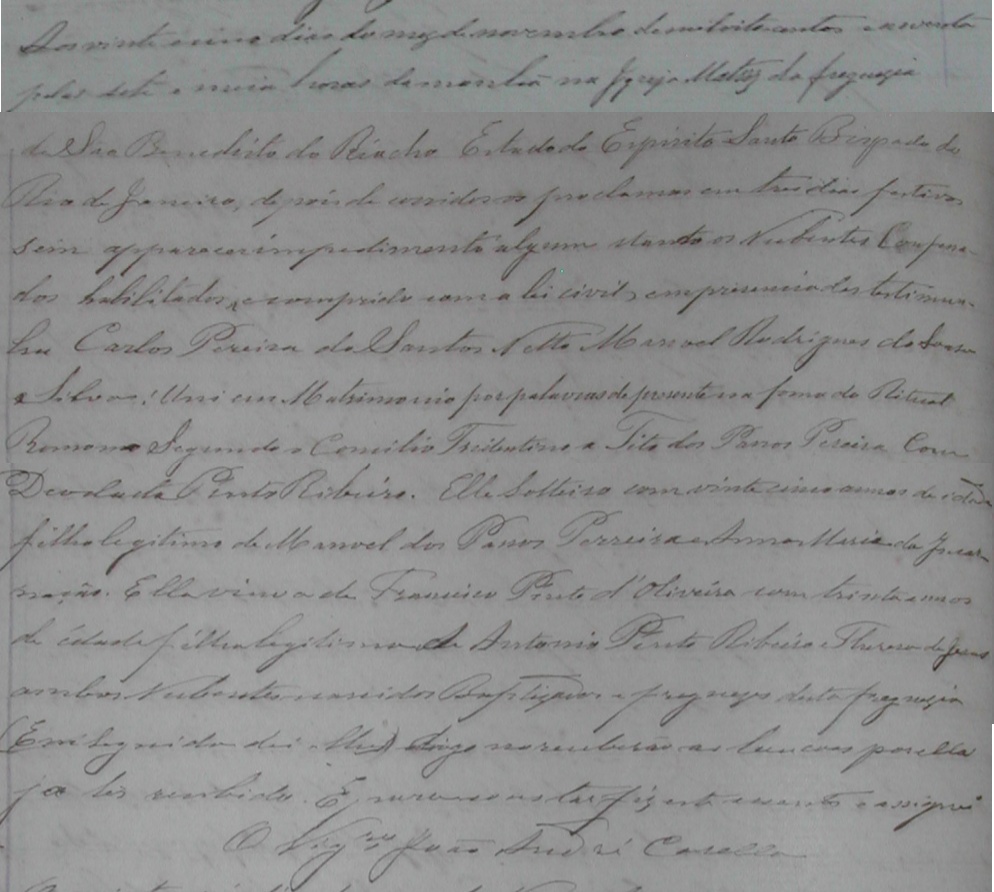 Aos vinte e cinco dias do mez de novembro de mil oito centos e noventa
pelas sete e meia horas da manhã na Igreja Matriz da freguezia
de São Benedicto do Riacho Estado do Espirito Santo Bispado do
Rio de Janeiro, depois de corridos os proclamas em tres dias festivos
sem apparecer impedimento algum stando os Nubentes Confessa-
dos habilitados, e comprido com a lei civil, em presencia das testimun-
has Carlos Pereira dos Santos Netto Manoel Rodrigues de
e Silva: Uni em Matrimonio por palavras de presente na forma do Ritual
Romano Segundo o Concilio Tridentino a Tito dos Passos Pereira Com
Deolinda Pinto Ribeiro. Elle Solteiro com vinte cinco annos de idade
filho legitimo de Manoel dos Passos Perreira e Anna Maria da Incar-
nação. Ella viuva de Francisco Pinto d'Oliveira com trinta annos
de idade filha legitima de Antonio Pinto Ribeiro e Thereza de Jesus
ambos Nubentes nascidos Baptizados e freguezes desta freguezia
(Em Seguida dei -lhes) digo não receberão as bençoas por ella
ja les recibido. E, para constar fiz este assento e assigno
O Vigrº João André Casella